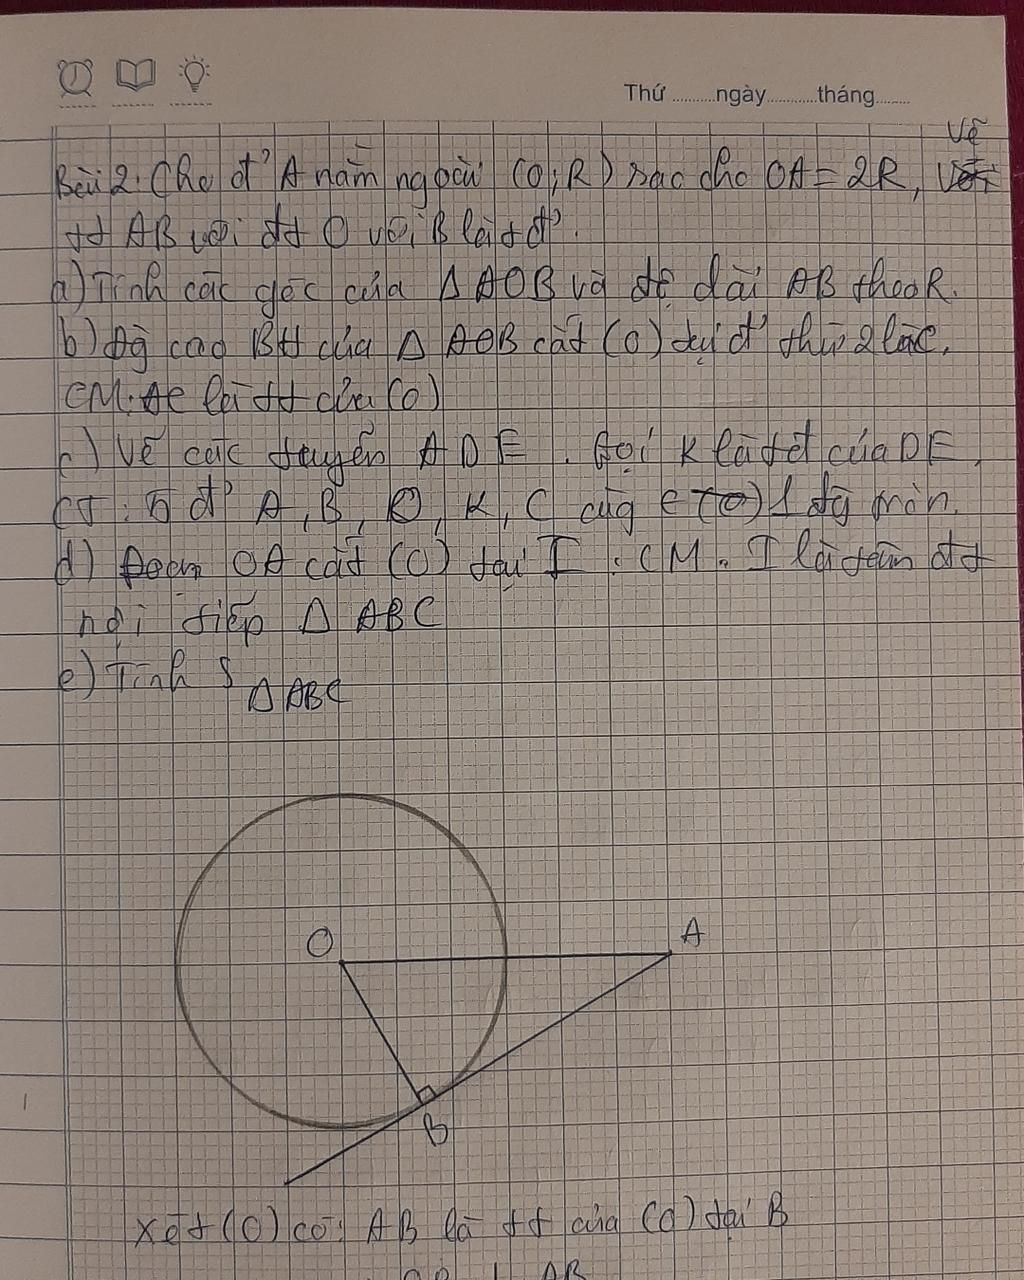 Thứ..........ngày...........tháng........
Vẽ
Bài 2: Cho đ' A nằm ngoài (O; R) sao cho OA = 2R,
tt AB với đt O với B là t đ'.
a) Tính các góc của Δ AOB và độ dài AB theo R.
b) Đg cao BH của Δ AOB cắt (O) tại đ' thứ 2 là C.
CM: AC là tt của (O)
c) Vẽ các tuyến A D E. Gọi K là t đ của DE.
CT: 5 đ' A, B, O, K, C cùg ∈ 1 đg tròn.
d) Đoạn OA cắt (O) tại I. CM: I là tâm đt
nội tiếp Δ ABC
e) Tính S Δ ABC
O
A
B
Xét (O) có: AB là tt của (O) tại B
OB ⊥ AB